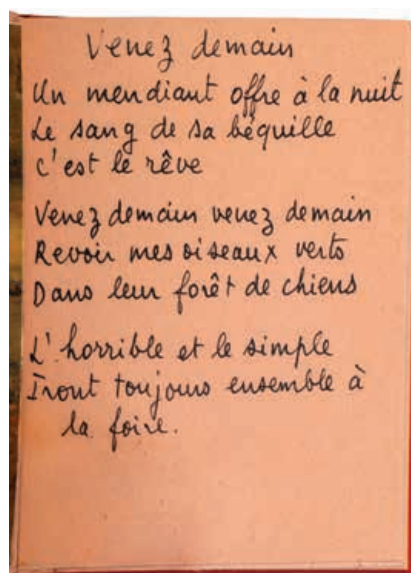 Venez demain
Un mendiant offre à la nuit
Le sang de sa béquille
C'est le rêve
Venez demain venez demain
Revoir mes oiseaux verts
Dans leur forêt de chiens
L'horrible et le simple
Iront toujours ensemble à
la foire.